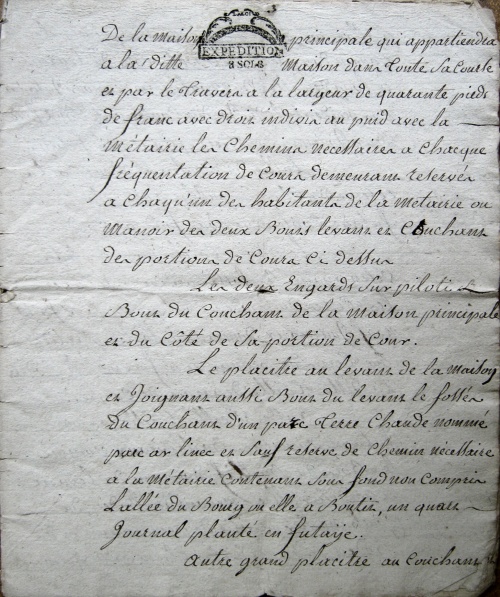 De la maison principale qui appartiendra
EXPEDITION
8 SOLS
a la ditte Maison dans toute sa Courte
et par le travers a la largeur de quarante pieds
de franc avec droit indivis au puid avec la
Métairie les Chemins necessaires a Chacque
fréquentation de Cours demeurans reservés
a chaqu'un des habitants de la metairie ou
Manoir des deux Bouts levant et Couchant
des portions de Cours Ci dessus
Les deux Engards sur pilotis
Bout du Couchant de la Maison principale
et du Côté de sa portion de Cour.
Le placitre au levant de la maison
et Joignant aussi Bout du levant le fossé
du Couchant d'un parc terre Chaude nommé
parc ar linec et sauf reserve de Chemin necessaire
a la Métairie Contenant sous fond non Compris
L'allée du Bourg ou elle a Boutis, un quart
Journal planté en futaije.
autre grand placitre au Couchant